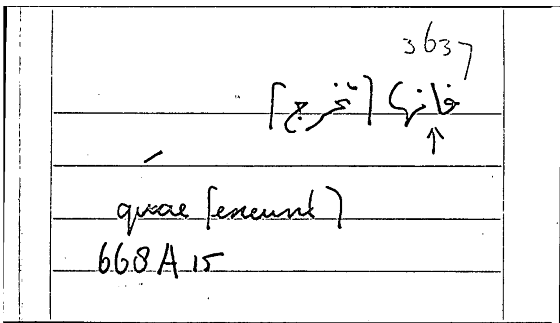 3637
فانها [تخرج]
↑
quae [exeunt]
668A 15